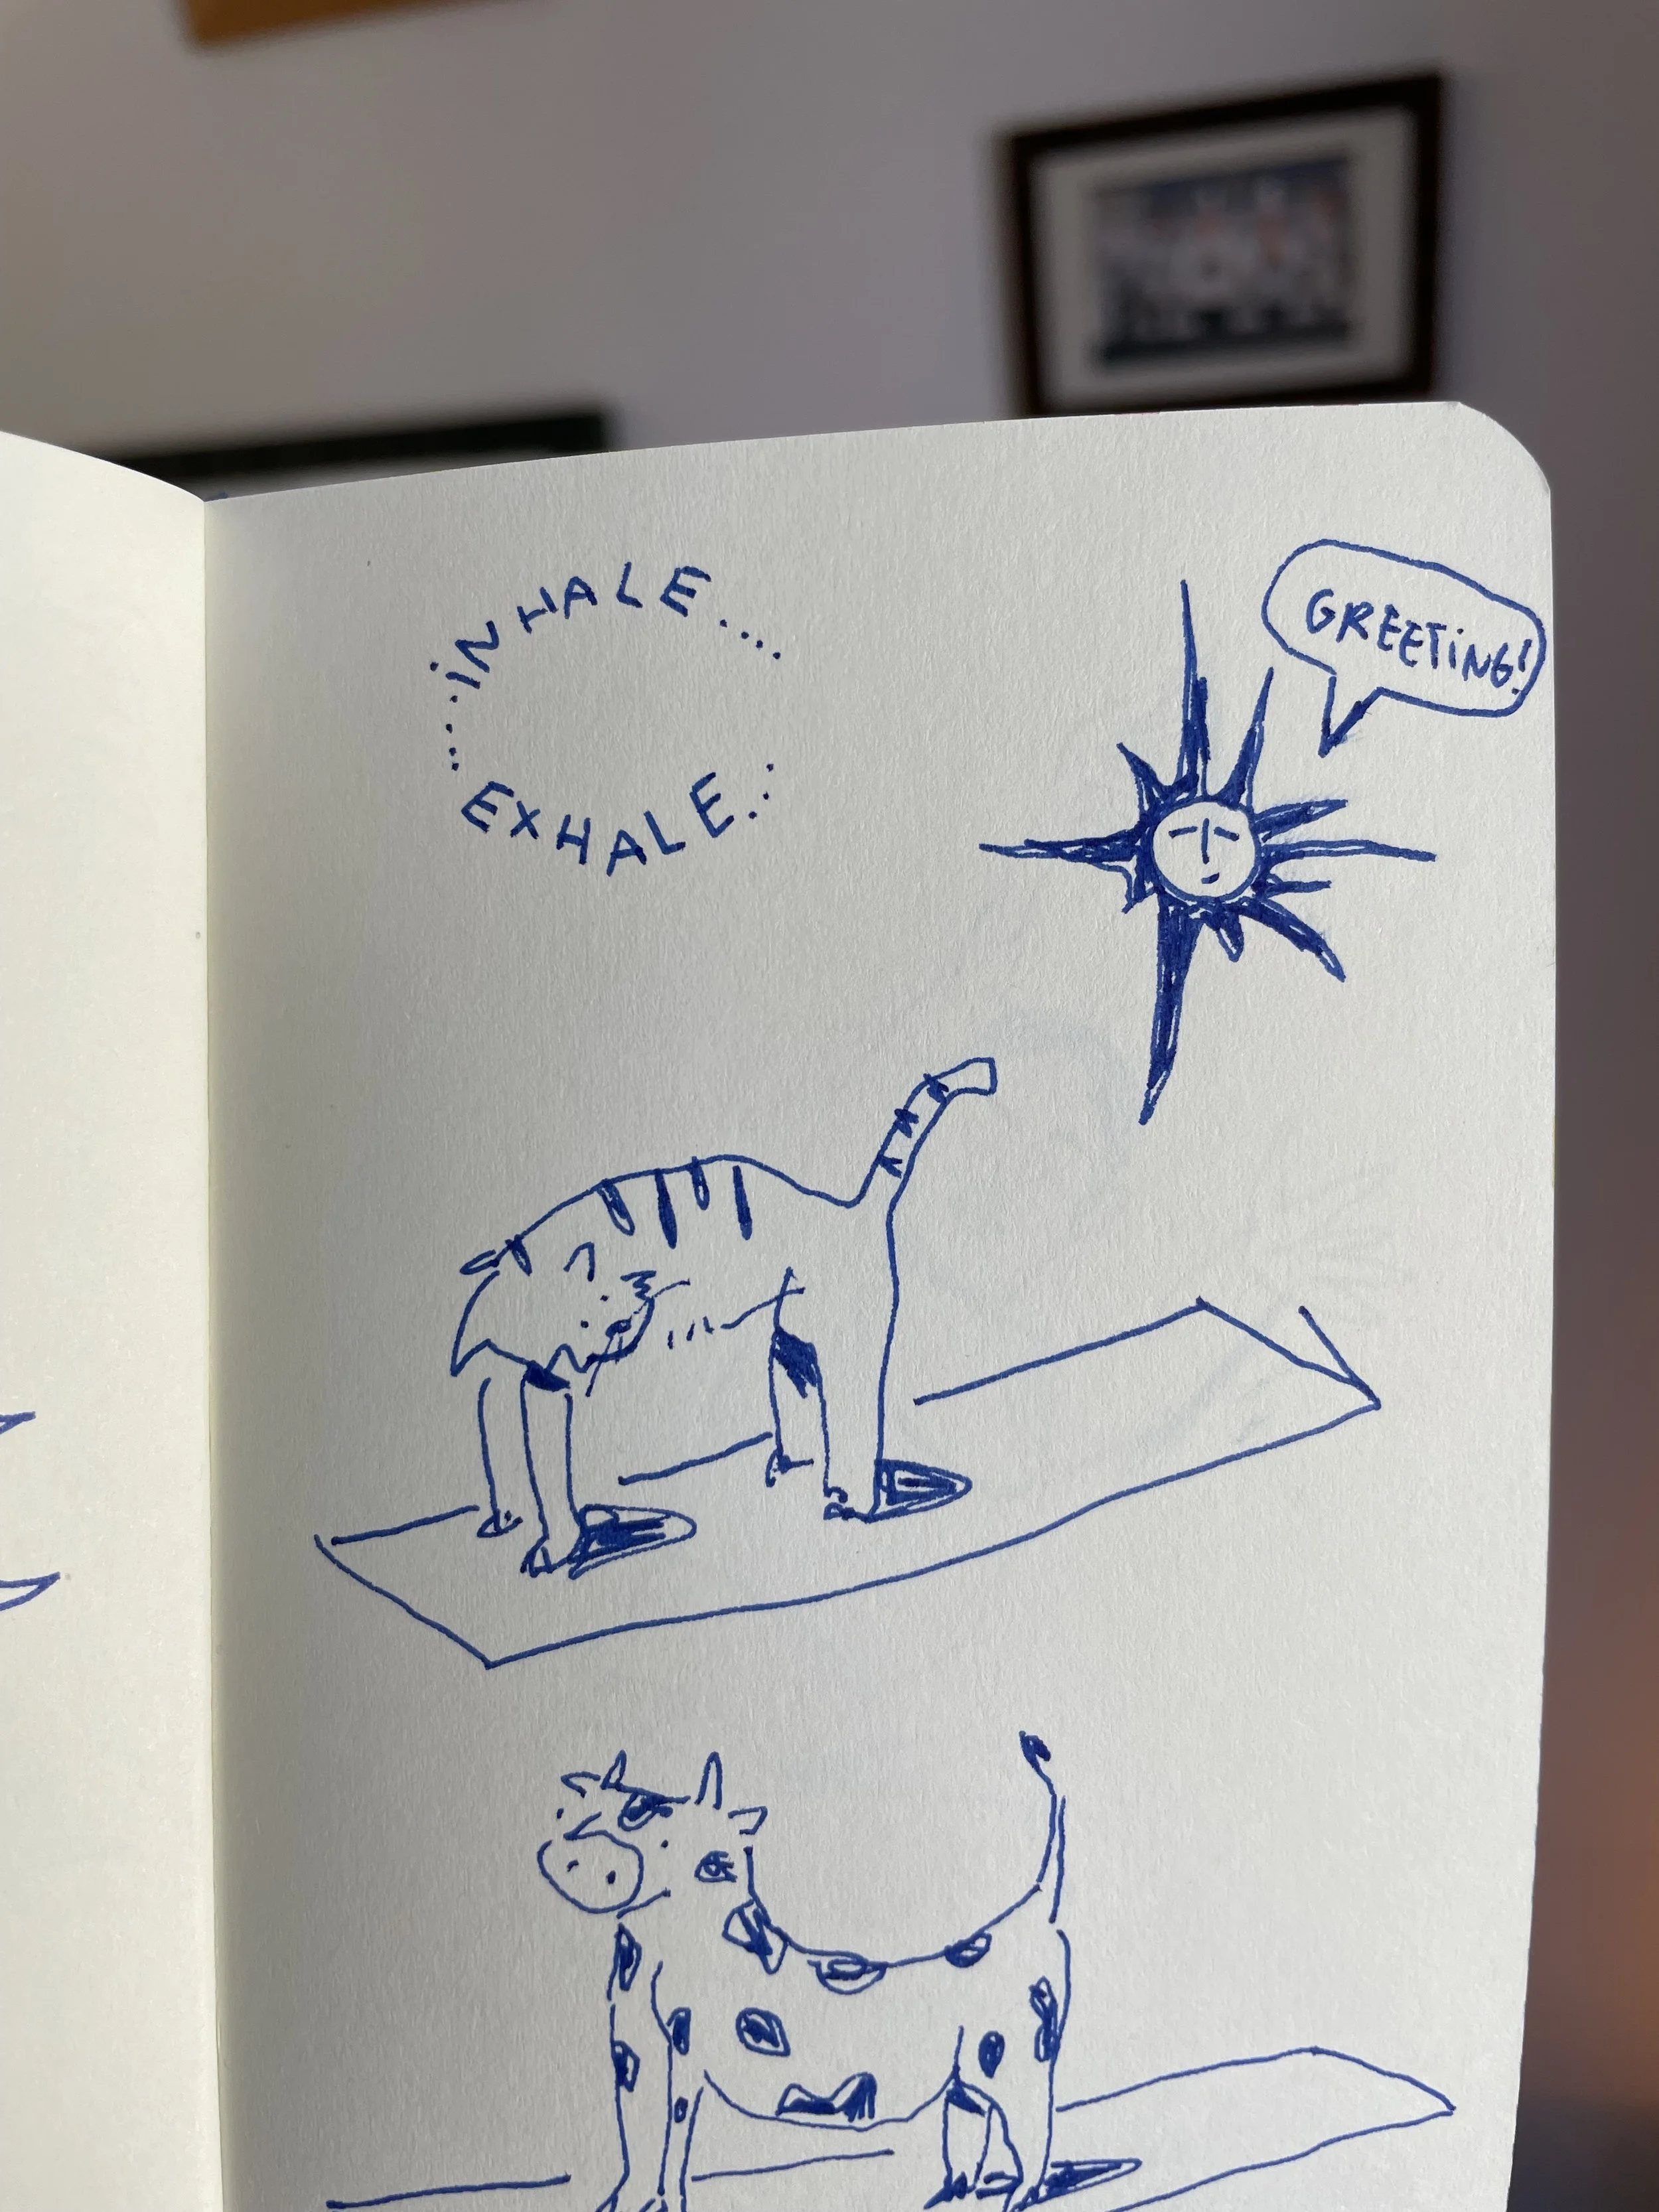 ...iNHALE....
EXHALE...
GREETiNG!